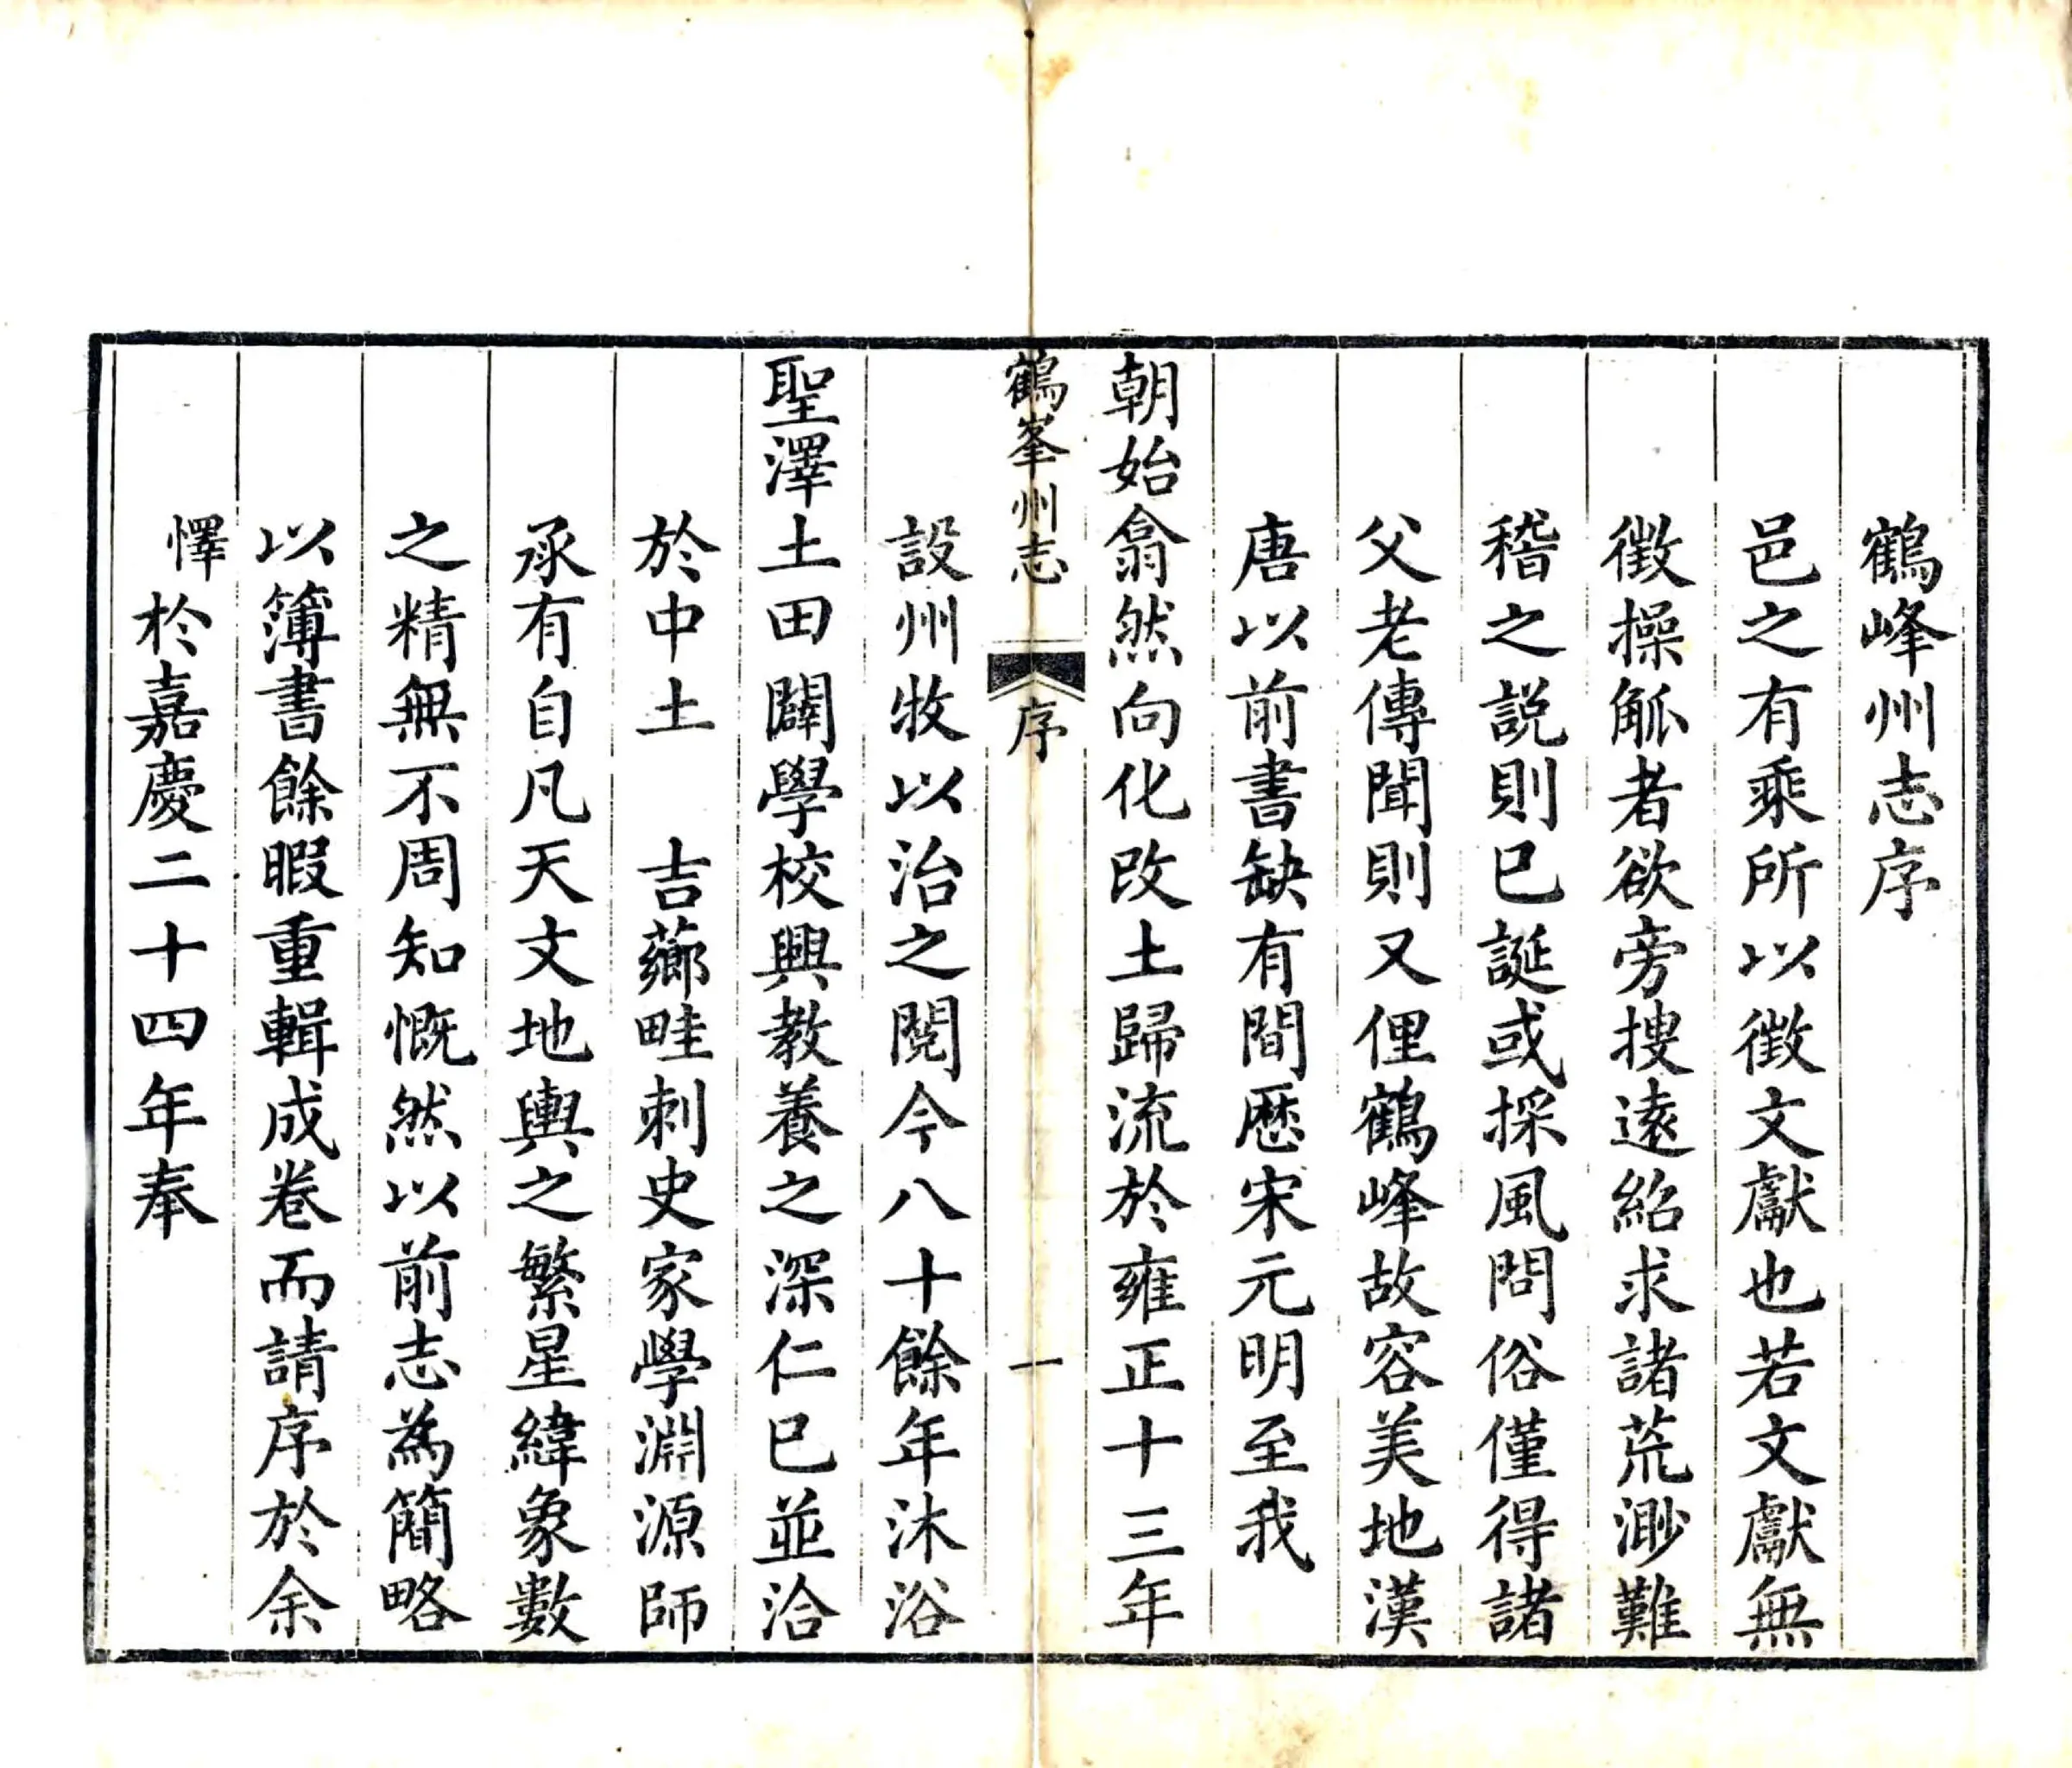 鶴峰州志序
邑之有乘所以徵文獻也若文獻無
徵操觚者欲旁搜遠紹求諸荒渺難
稽之説則已誕或採風問俗僅得諸
父老傳聞則又俚鶴峰故容美地漢
唐以前書缺有間歷宋元明至我
朝始翕然向化改土歸流於雍正十三年
鶴峯州志 序 一
設州牧以治之閱今八十餘年沐浴
聖澤土田闢學校興教養之深仁已並洽
於中土 吉薌畦刺史家學淵源師
承有自凡天文地輿之繁星緯象數
之精無不周知慨然以前志為簡略
以簿書餘暇重輯成卷而請序於余
懌於嘉慶二十四年奉